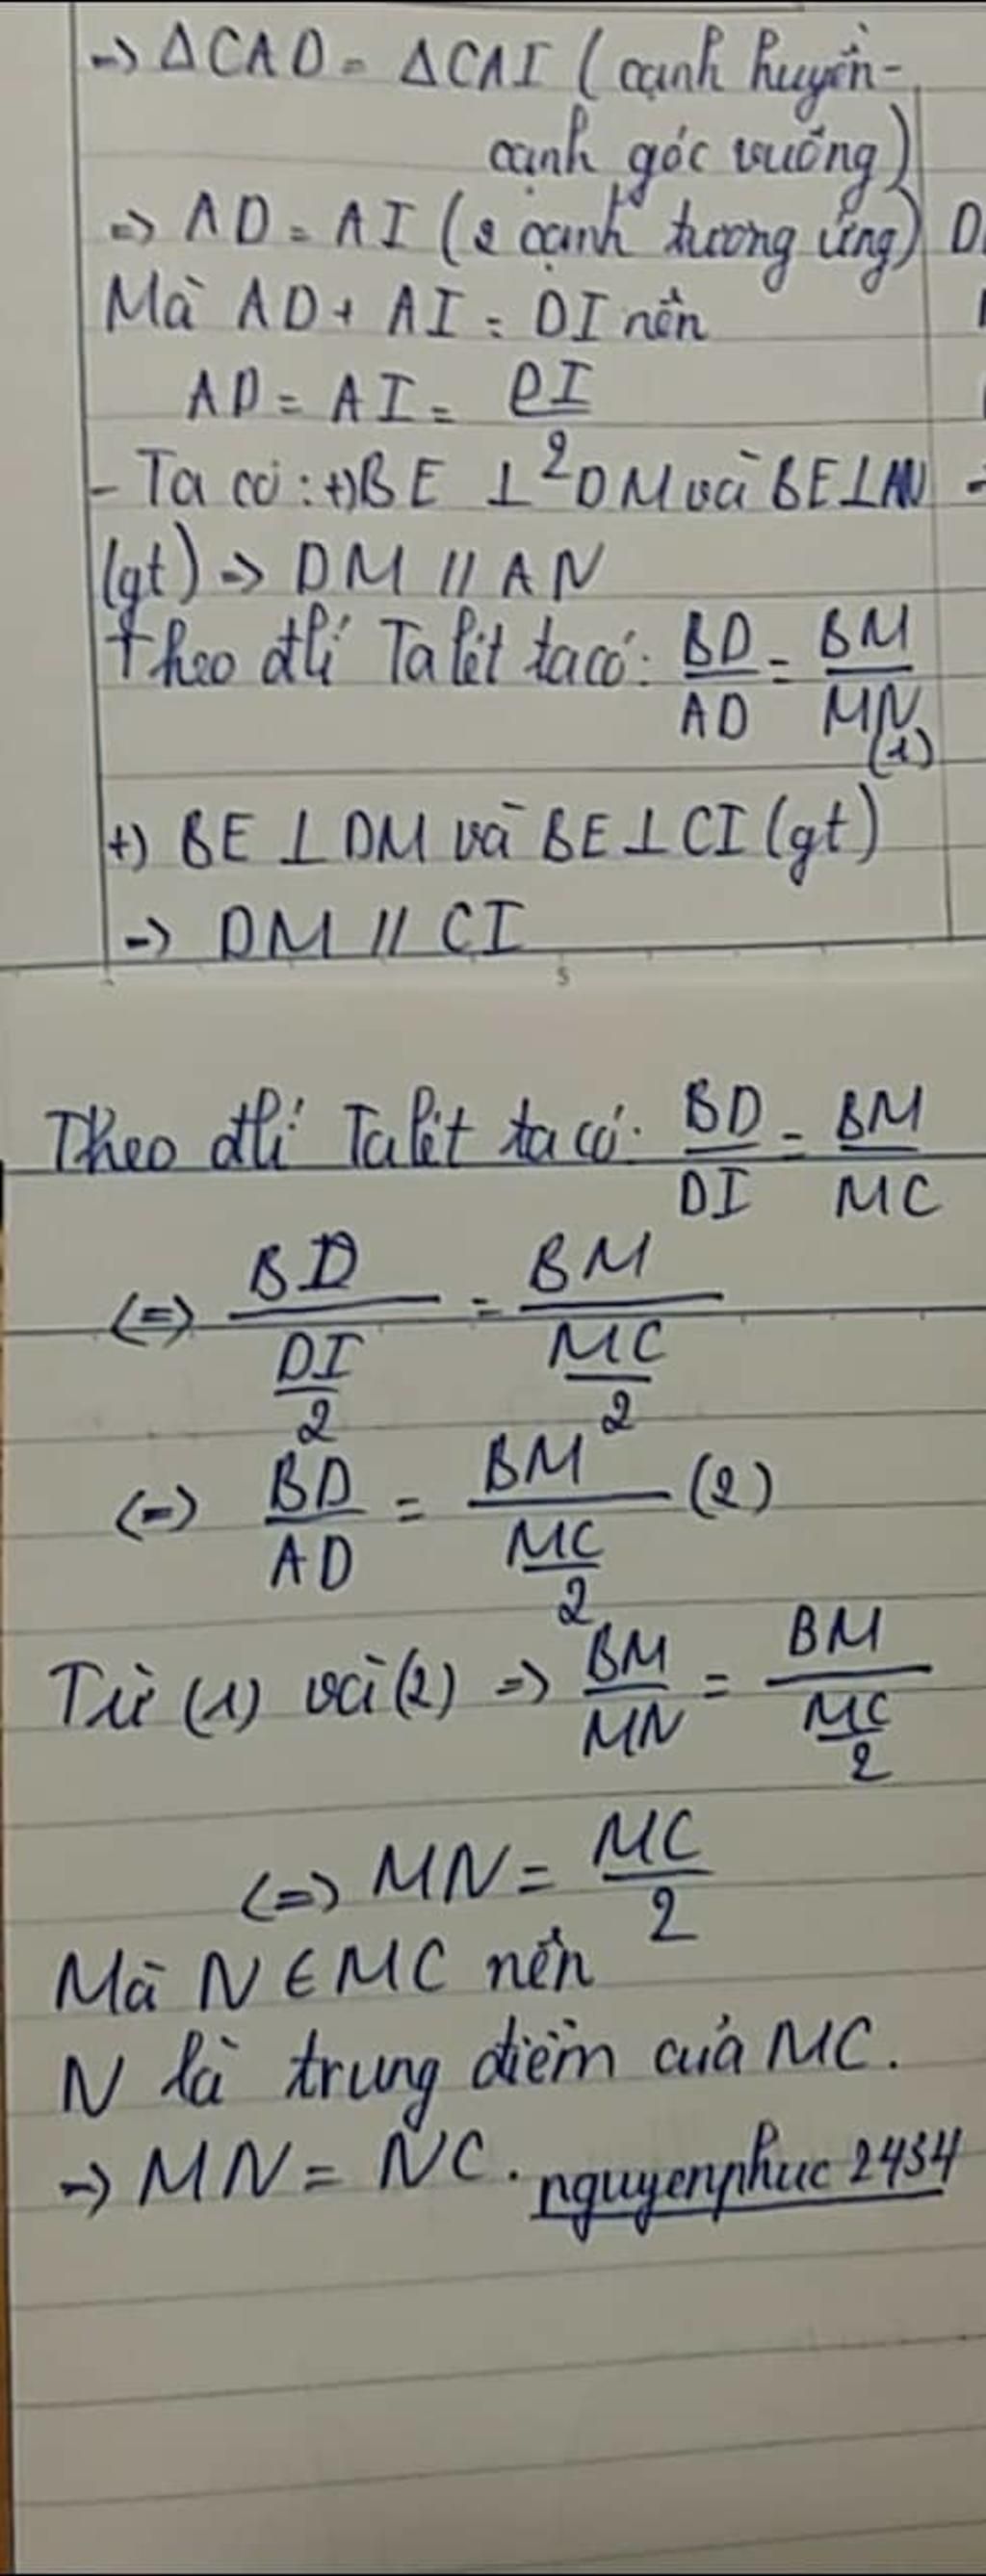 => ΔCAD = ΔCAI (cạnh huyền-
cạnh góc vuông)
=> AD = AI (2 cạnh tương ứng)
Mà AD + AI = DI nên
AD = AI = DI/2
- Ta có: +) BE ⊥ DM và BE ⊥ AN
(gt) => DM // AN
Theo đlí Talét ta có: BD/AD = BM/MN
(1)
+) BE ⊥ DM và BE ⊥ CI (gt)
=> DM // CI
Theo đlí Talét ta có: BD/DI = BM/MC
<=> BD/(DI/2) = BM/(MC/2)
<=> BD/AD = BM/(MC/2) (2)
Từ (1) và (2) => BM/MN = BM/(MC/2)
<=> MN = MC/2
Mà N ∈ MC nên
N là trung điểm của MC.
=> MN = NC. nguyenphuc2454